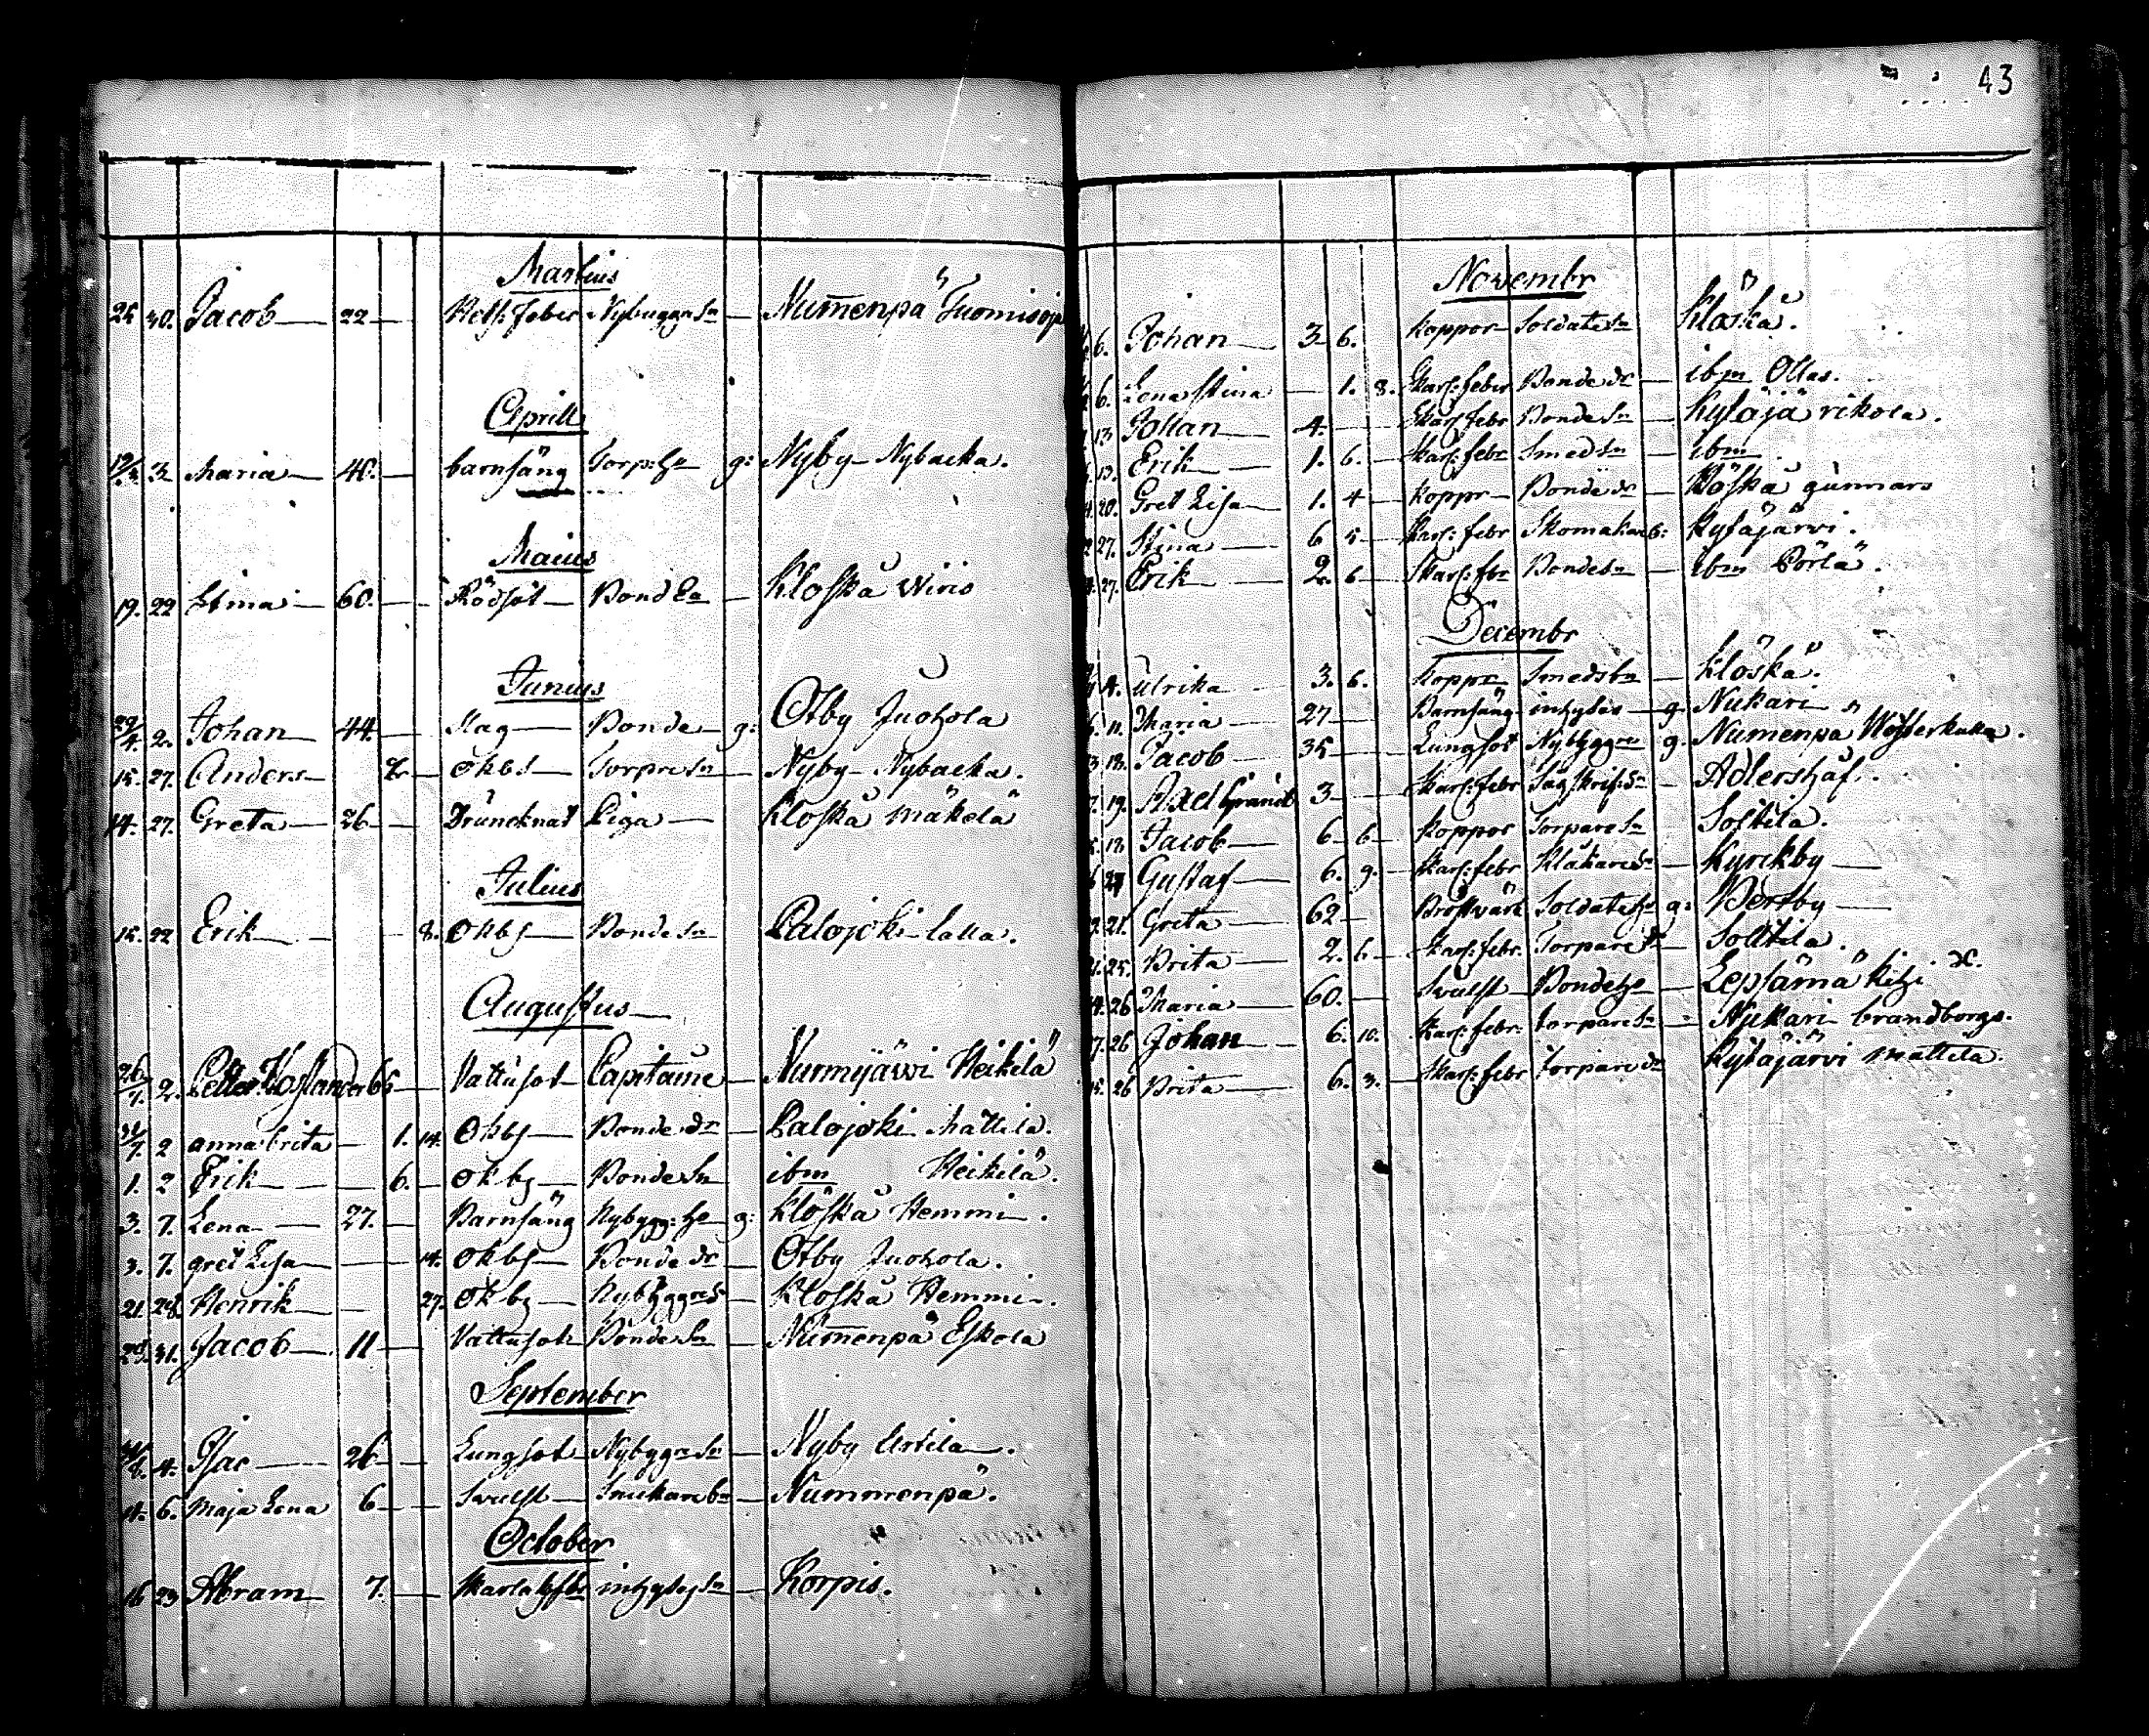 43
Martius
25 30. Jacob 22 Ret: feber Nybyggr Sn Numenpä Tuomisoja
Aprill
19/3 3 Maria 40. barnsäng Torp: H:u g: Nyby Nybacka.
Maius
19. 22 Stina 60. Rödsot Bond Klofskå Wiris
Junius
29/4. 2. Johan 44. Slag Bonde g: Otby Juohola
15. 27. Anders 2. Okbs Torpre Sn Nyby Nybacka.
14. 27. Greta 26 Drúncknat Piga Klofskå mäkelä
Julius
15. 22 Erik 8. Okbs Bonde Sn Palojoki lalla.
Augustus
26/7. 2. Petter 66 Vattusot Capitaine Nurmijärvi Heikilä
31/7 2 anna brita 1. 14. Okbs Bonde dr Palojoki Mattila.
1. 2 Erik 6. Okbs Bonde Sn ibm Heikilä.
3. 7. Lena 27. Barnsäng Nybygg: He g: Klofskå Hemmi.
3. 7. gret Lisa 14. Okbs Bonde dr Otby Juohola.
21. 28. Henrik 27. Okbs Nybyggre S Klofskå Hemmi.
29. 31. Jacob 11 Vattusot Bonde Sn Numenpä Eskola
September
31/8. 4. Isac 26 Lungsot Nybyggr Sn Nyby Uotila.
4. 6. Maja Lena 6 Svulst Nummenpä.
October
16 23 Abram 7. Skarlaks fbr inhyses Sn Korpis.
Novembr
6. Johan 3 6. Koppor Soldate Sn Klöfskå.
6. Lena Stina 1. 8. Skarl: feber Bonde dr ibm Ollas.
13 Johan 4. Skarl: febr Bonde Sn Kytäjä rikola.
13. Erik 1. 6. Skarl: febr Smed Sn ibm
20. Gret Lisa 1. 4 Koppr Bonde dr Klöfskå gunnars
27. Stina 6 5 Skarl: febr Skomakare Kytäjärvi.
27. Erik 2. 6 Skarl: fbr Bonde Sn ibm Pörlä.
Decembr
4. Ulrika 3. 6. Koppr Smeds Klöfskå.
11. Maria 27 Barnsäng inhyses g. Nukari
13 18. Jacob 35 Lungsot Nybyggre g. Numenpä Wösterkulla.
19. Axel 3 Skarl: febr Adlershäf.
18. Jacob 6 6 Koppor Torpare Sn Soltila.
Gustaf 6. 9. Skarl: febr Klåkare Sn Kyrckby
21. Greta 62 Bröstvärk Soldate He g: Bertby
25. Brita 2. 6 Skarl: febr. Torpare dr Soltila.
14. 26 Maria 60. Svulst Bonde He Lepsämä
17. 26 Johan 6. 10. Skarl: febr: torpare Sn Nukari brandborgs.
15. 26 Brita 6. 3. Skarl: febr torpare dr Kytäjärvi mattila.